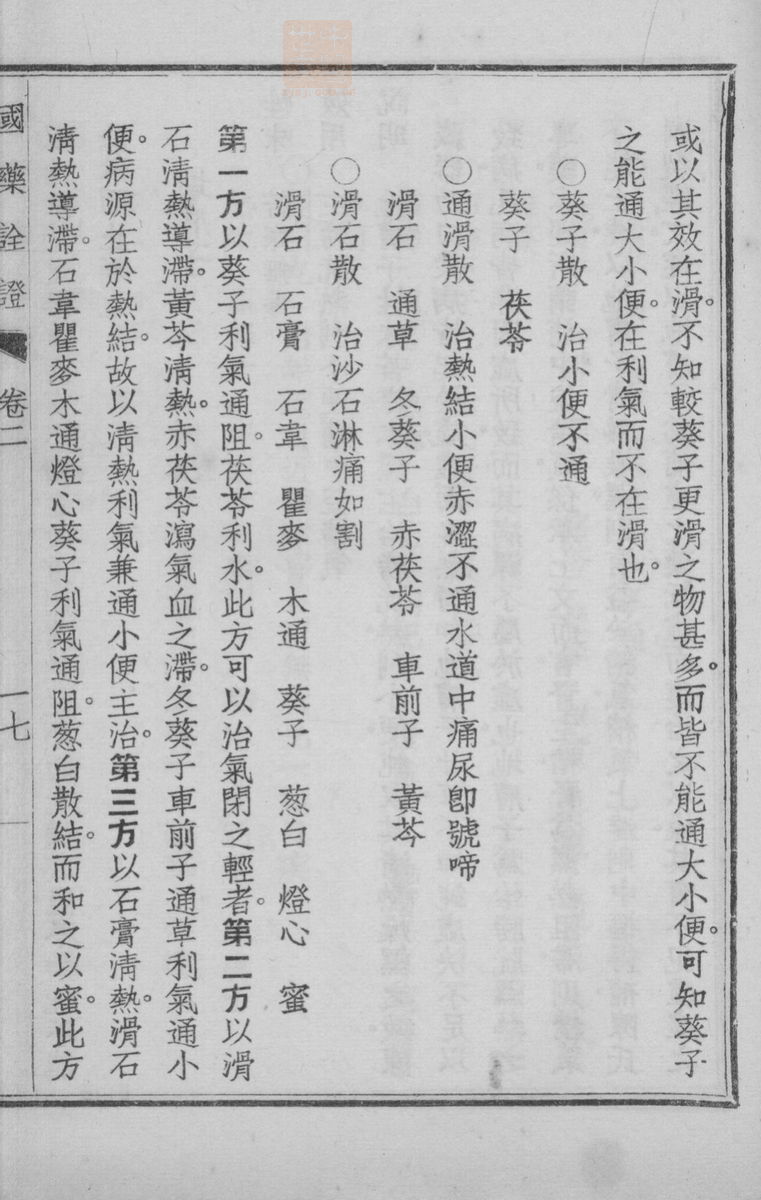 或以其效在滑。不知較葵子更滑之物甚多。而皆不能通大小便。可知葵子
之能通大小便。在利氣而不在滑也。
○葵子散　治小便不通
葵子　茯苓
○通滑散　治熱結小便赤澀不通水道中痛尿卽號啼
滑石　通草　冬葵子　赤茯苓　車前子　黃芩
○滑石散　治沙石淋痛如割
滑石　石膏　石韋　瞿麥　木通　葵子　葱白　燈心　蜜
第一方以葵子利氣通阻。茯苓利水。此方可以治氣閉之輕者。第二方以滑
石清熱導滯。黃芩清熱。赤茯苓瀉氣血之滯。冬葵子車前子通草利氣通小
便。病源在於熱結。故以清熱利氣兼通小便主治。第三方以石膏清熱。滑石
清熱導滯。石韋瞿麥木通燈心葵子利氣通阻。葱白散結。而和之以蜜。此方
國藥詮證　卷二　一七